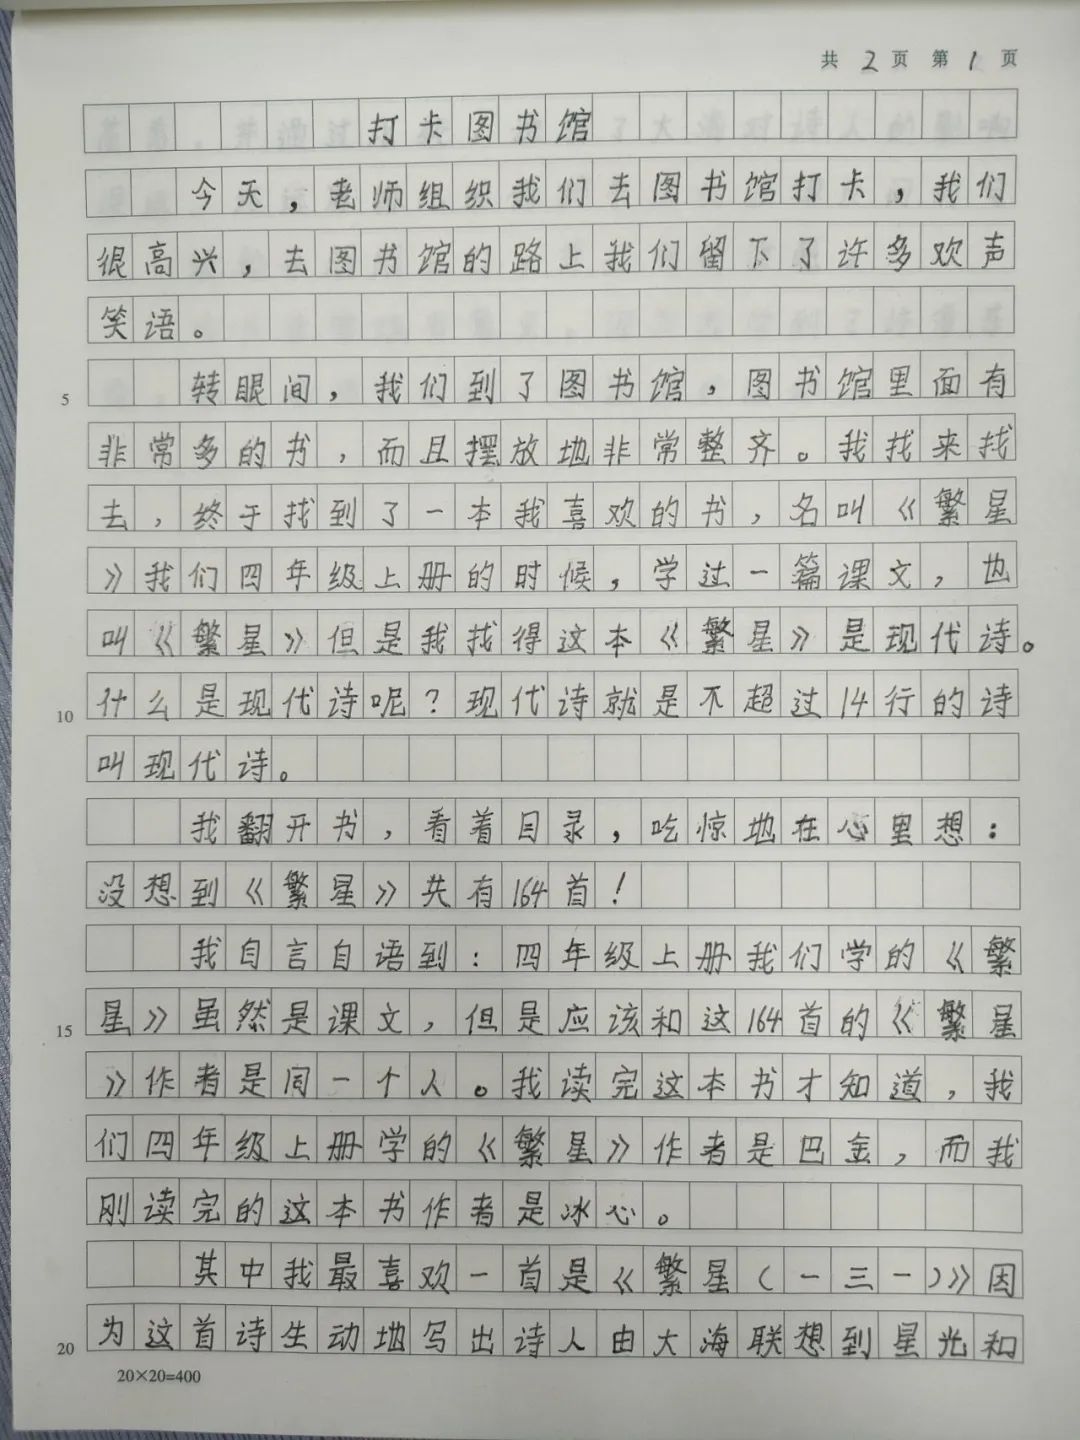 共2页 第1页
打卡图书馆
今天，老师组织我们去图书馆打卡，我们
很高兴，去图书馆的路上我们留下了许多欢声
笑语。
5 转眼间，我们到了图书馆，图书馆里面有
非常多的书，而且摆放地非常整齐。我找来找
去，终于找到了一本我喜欢的书，名叫《繁星
》我们四年级上册的时候，学过一篇课文，也
叫《繁星》但是我找得这本《繁星》是现代诗。
10 什么是现代诗呢？现代诗就是不超过14行的诗
叫现代诗。
我翻开书，看着目录，吃惊地在心里想：
没想到《繁星》共有164首！
我自言自语到：四年级上册我们学的《繁
15 星》虽然是课文，但是应该和这164首的《繁星
》作者是同一个人。我读完这本书才知道，我
们四年级上册学的《繁星》作者是巴金，而我
刚读完的这本书作者是冰心。
其中我最喜欢一首是《繁星（一三一）》因
20 为这首诗生动地写出诗人由大海联想到星光和
20×20=400